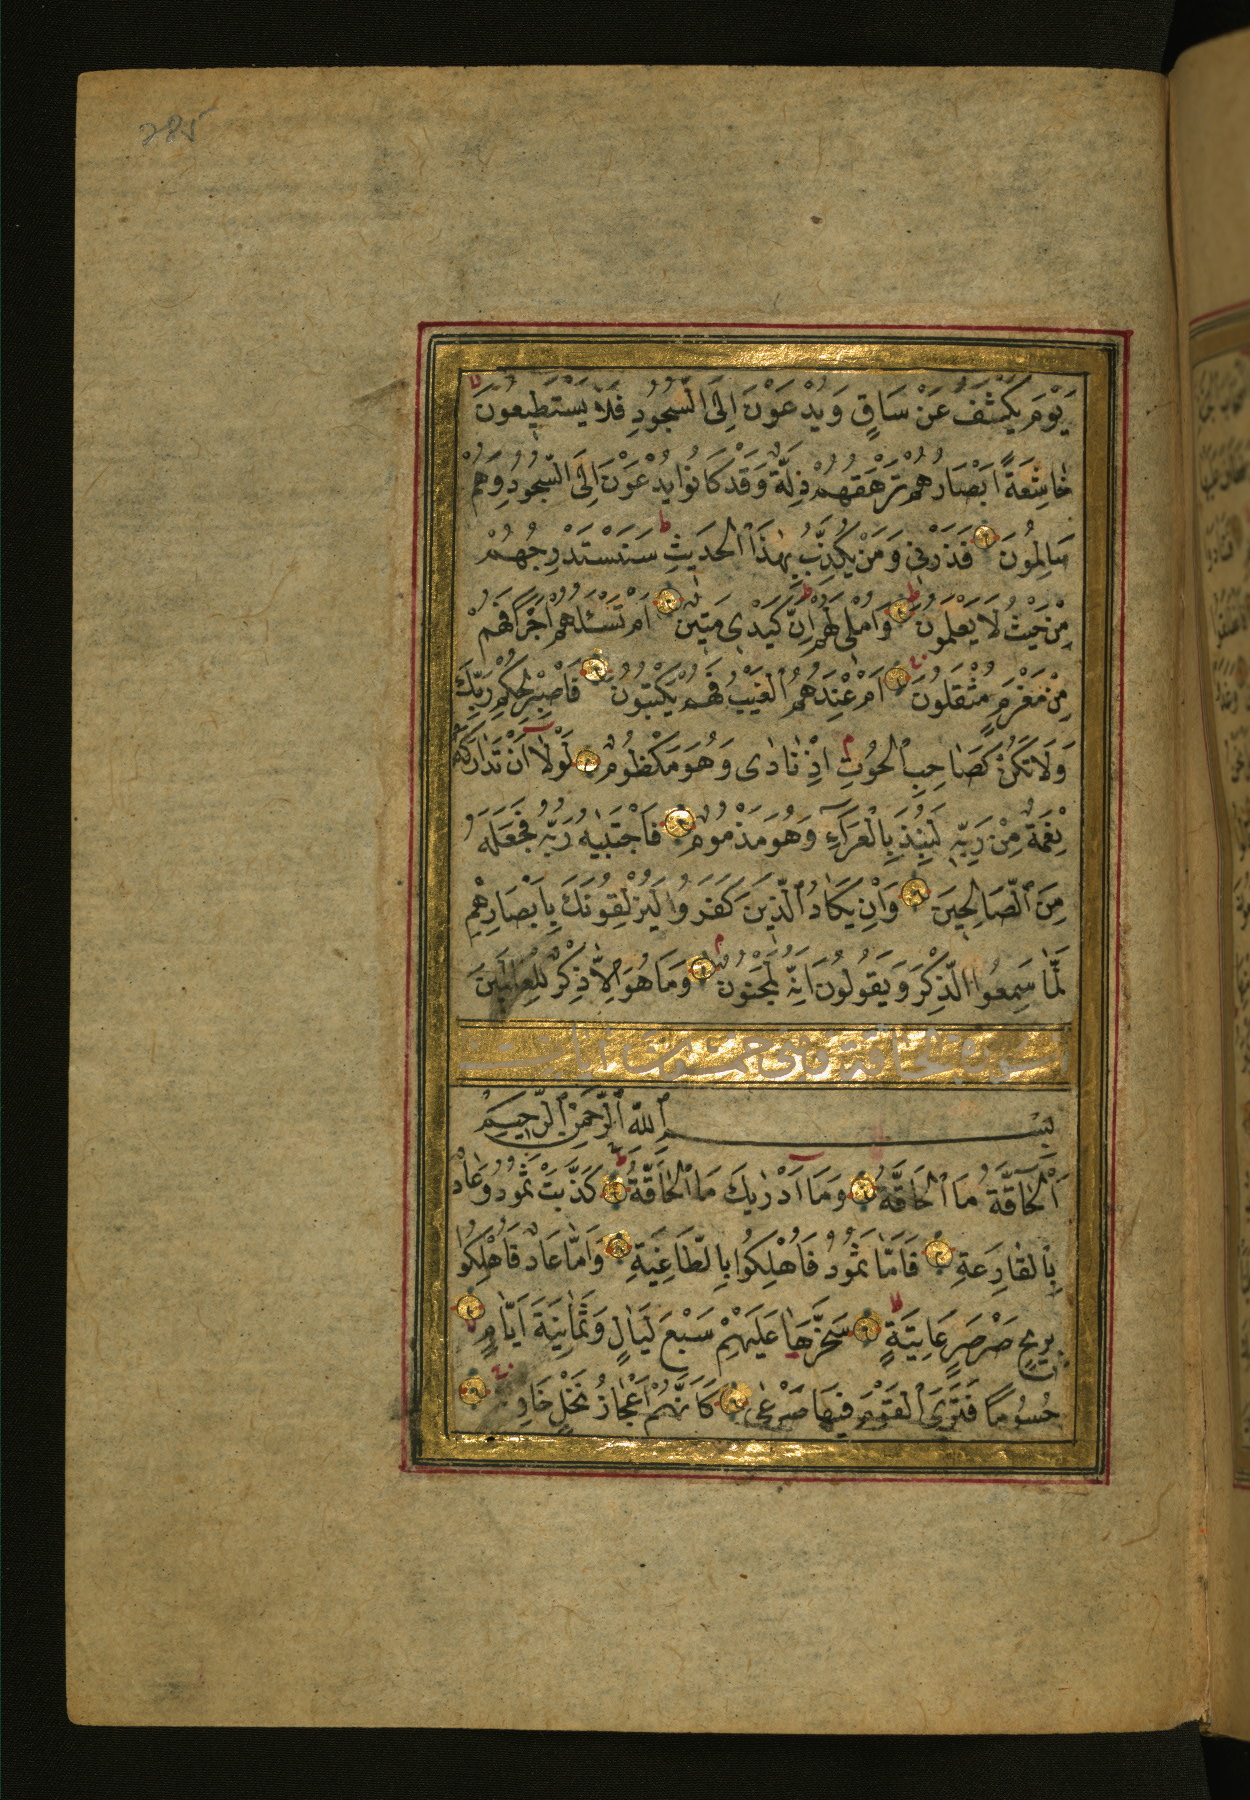 285
يَوْمَ يُكْشَفُ عَنْ سَاقٍ وَيُدْعَوْنَ اِلَى السُّجُودِ فَلَا يَسْتَطِيعُونَ
خَاشِعَةً اَبْصَارُهُمْ تَرْهَقُهُمْ ذِلَّةٌ وَقَدْ كَانُوا يُدْعَوْنَ اِلَى السُّجُودِ وَهُمْ
سَالِمُونَ فَذَرْنِي وَمَنْ يُكَذِّبُ بِهٰذَا الْحَدِيثِ سَنَسْتَدْرِجُهُمْ
مِنْ حَيْثُ لَا يَعْلَمُونَ وَاُمْلِي لَهُمْ اِنَّ كَيْدِي مَتِينٌ اَمْ تَسْـَٔلُهُمْ اَجْرًا فَهُمْ
مِنْ مَغْرَمٍ مُثْقَلُونَ اَمْ عِنْدَهُمُ الْغَيْبُ فَهُمْ يَكْتُبُونَ فَاصْبِرْ لِحُكْمِ رَبِّكَ
وَلَا تَكُنْ كَصَاحِبِ الْحُوتِ اِذْ نَادٰى وَهُوَ مَكْظُومٌ لَوْلَا اَنْ تَدَارَكَهُ
نِعْمَةٌ مِنْ رَبِّهِ لَنُبِذَ بِالْعَرَآءِ وَهُوَ مَذْمُومٌ فَاجْتَبٰيهُ رَبُّهُ فَجَعَلَهُ
مِنَ الصَّالِحِينَ وَاِنْ يَكَادُ الَّذِينَ كَفَرُوا لَيُزْلِقُونَكَ بِاَبْصَارِهِمْ
لَمَّا سَمِعُوا الذِّكْرَ وَيَقُولُونَ اِنَّهُ لَمَجْنُونٌ وَمَا هُوَ اِلَّا ذِكْرٌ لِلْعَالَمِينَ
سورة الحاقة
بِسْمِ اللّٰهِ الرَّحْمٰنِ الرَّحِيمِ
اَلْحَآقَّةُ مَا الْحَاقَّةُ وَمَا اَدْرٰيكَ مَا الْحَاقَّةُ كَذَّبَتْ ثَمُودُ وَعَادٌ
بِالْقَارِعَةِ فَاَمَّا ثَمُودُ فَاُهْلِكُوا بِالطَّاغِيَةِ وَاَمَّا عَادٌ فَاُهْلِكُوا
بِرِيحٍ صَرْصَرٍ عَاتِيَةٍ سَخَّرَهَا عَلَيْهِمْ سَبْعَ لَيَالٍ وَثَمَانِيَةَ اَيَّامٍ
حُسُومًا فَتَرَى الْقَوْمَ فِيهَا صَرْعٰى كَاَنَّهُمْ اَعْجَازُ نَخْلٍ خَاوِيَةٍ